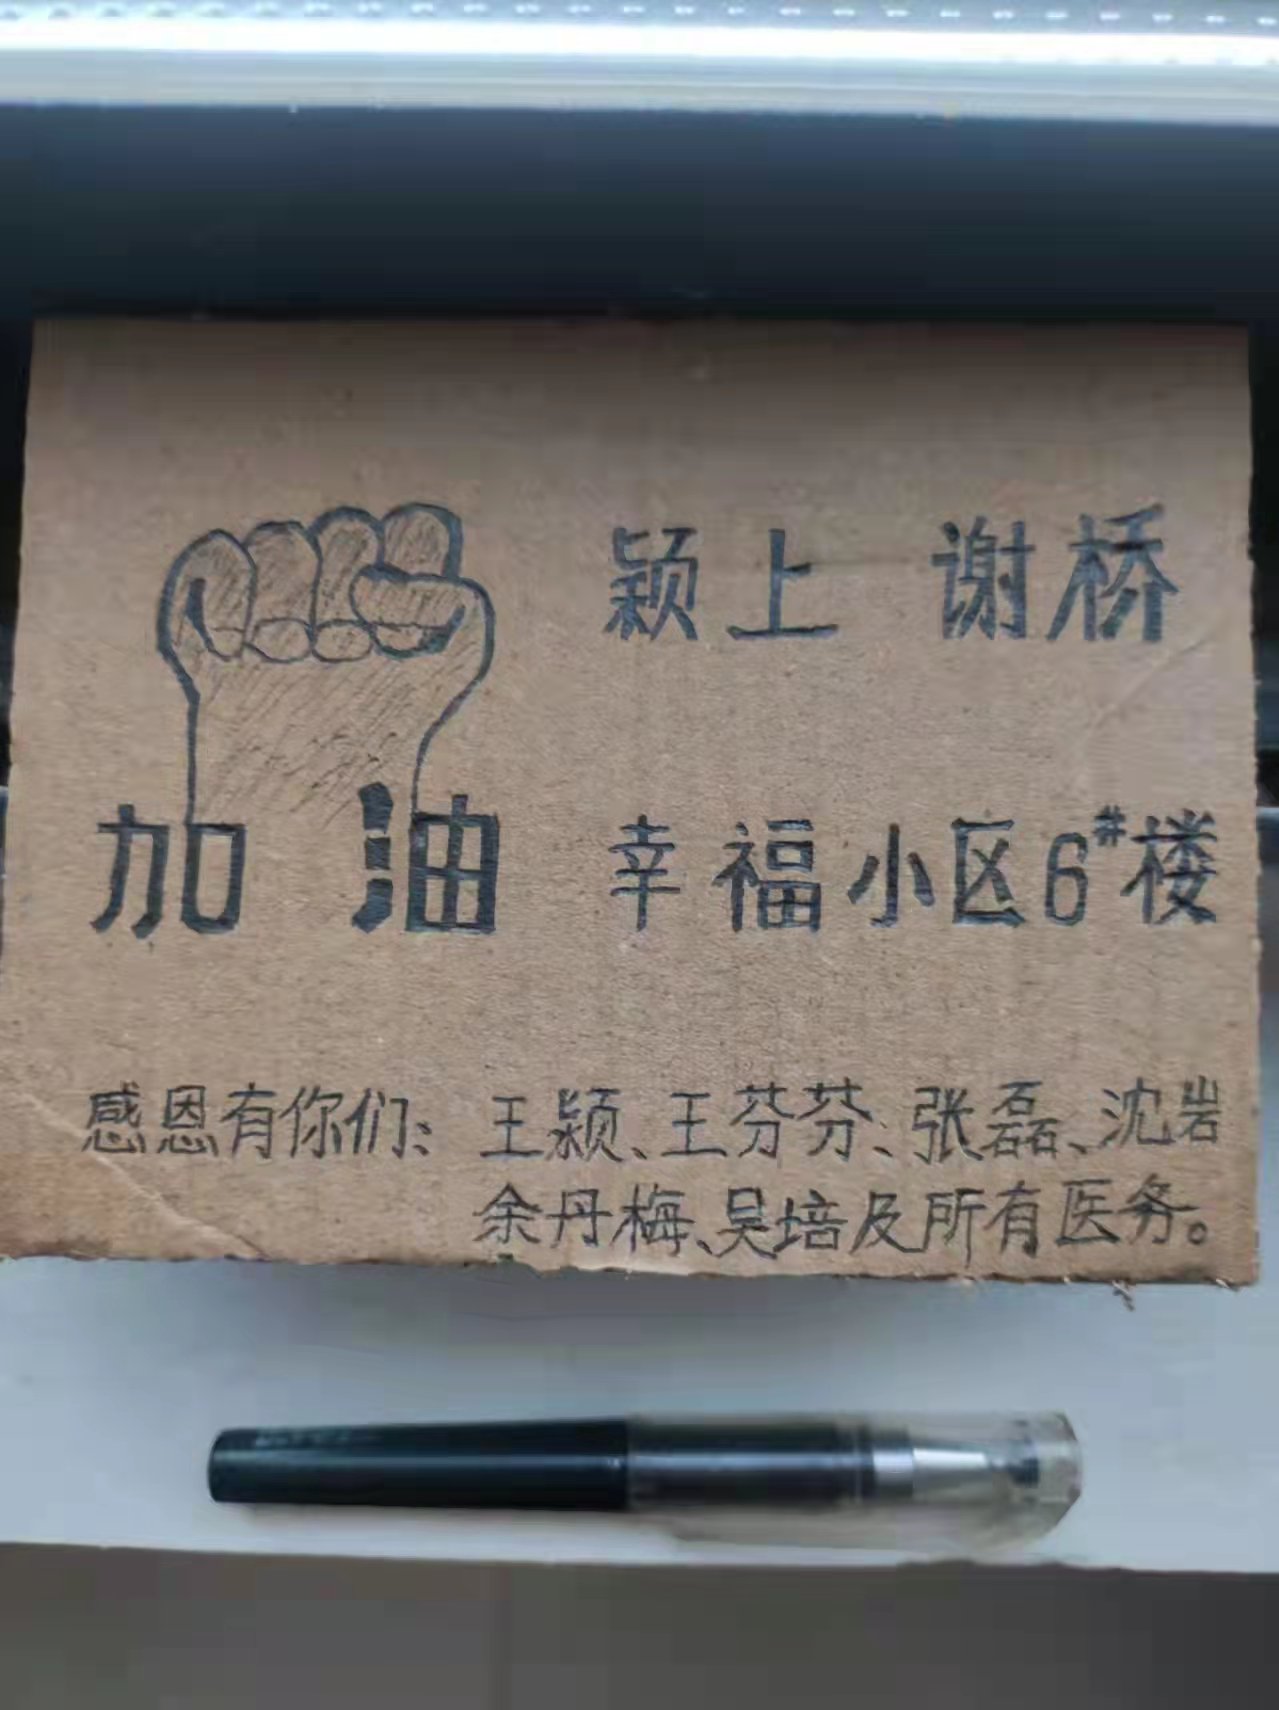 颍上 谢桥
加油 幸福小区6#楼
感恩有你们: 王颖、王芬芬、张磊、沈岩
余丹梅、吴培及所有医务。